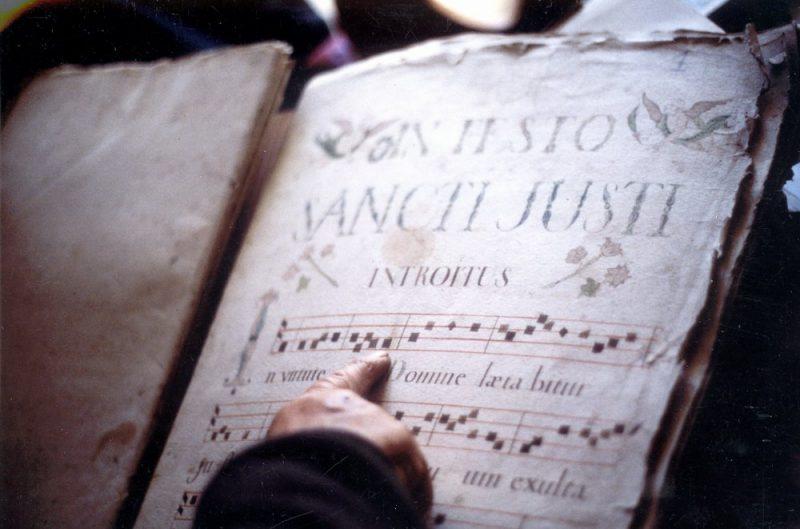 IN FESTO
SANCTI JUSTI
INTROITUS
In virtute Domine læta bitur
um exulta